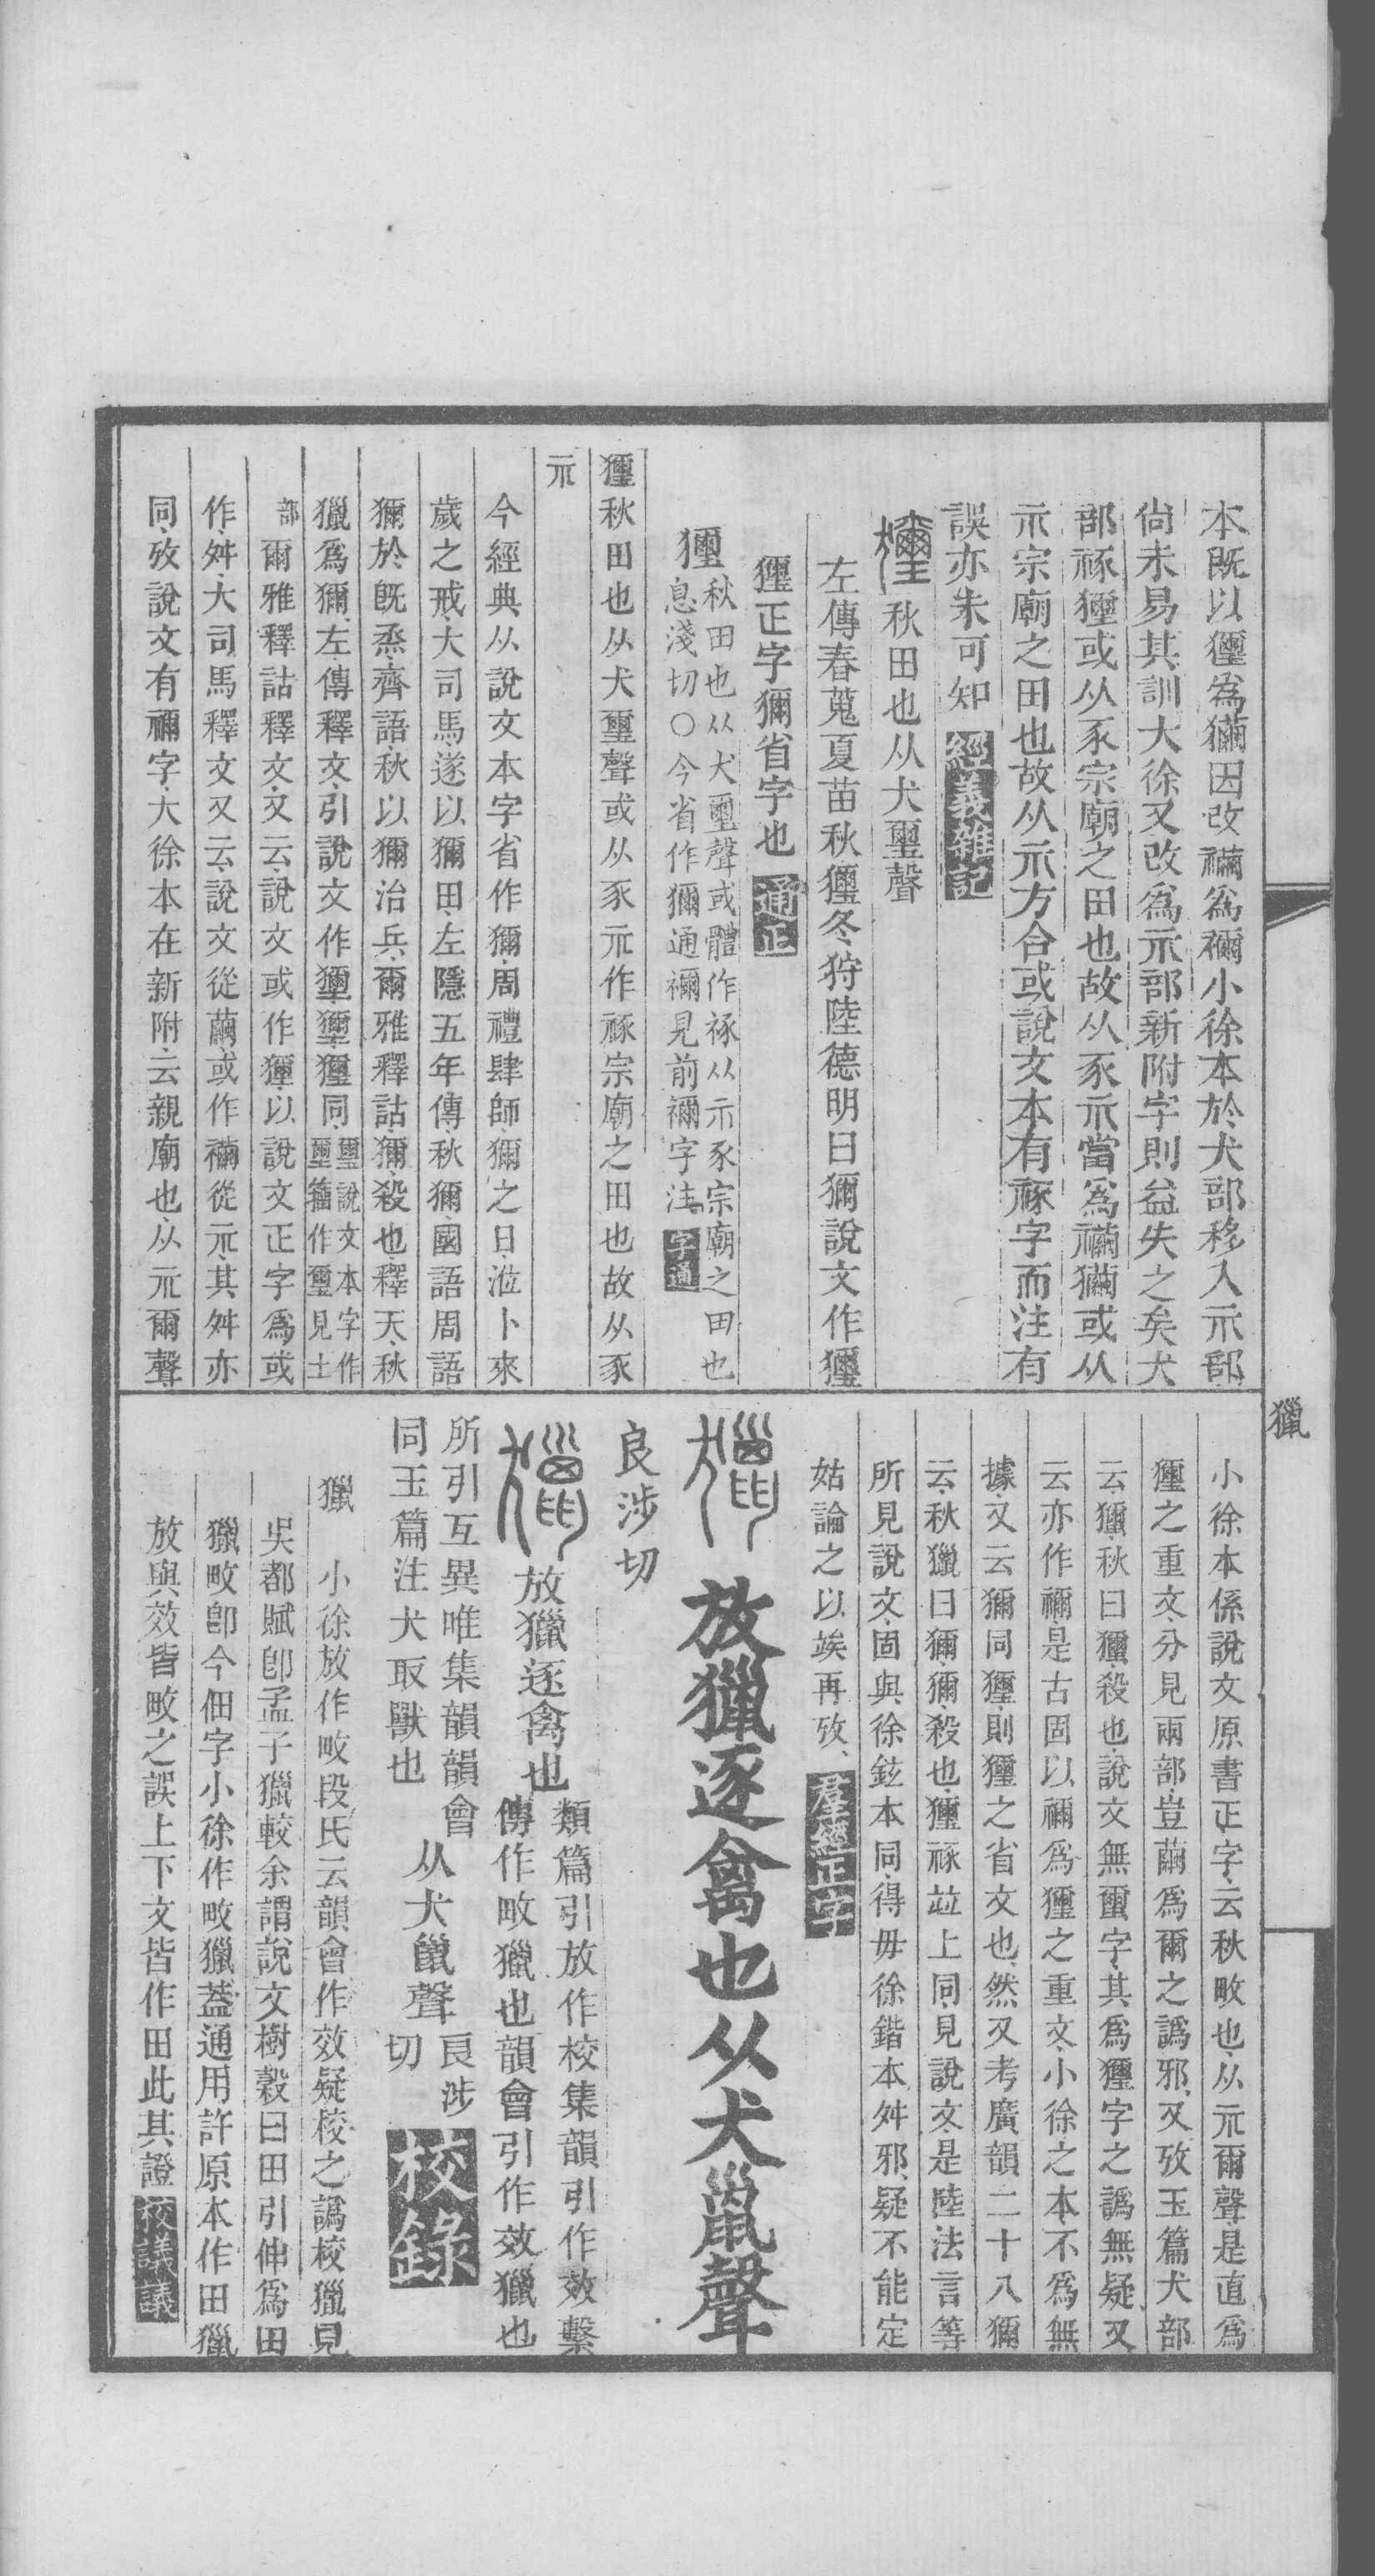 本既以玃爲獮因改禰爲禰小徐本於犬部移入示部
尙未易其訓大徐又改爲示部新附字則益失之矣犬
部䄠玃或从豕宗廟之田也故从豕示當爲禰獮或从
示宗廟之田也故从示方合或說文本有䄠字而注有
誤亦未可知 經義雜記
秋田也从犬璽聲
左傳春蒐夏苗秋玃冬狩陸德明曰獮說文作玃
玃正字獮省字也 通正
秋田也从犬璽聲或體作䄠从示豕宗廟之田也
息淺切〇今省作獮通禰見前禰字注 字通
秋田也从犬璽聲或从豕示作䄠宗廟之田也故从豕
示
今經典从說文本字省作獮周禮肆師獮之日涖卜來
歲之戒大司馬遂以獮田左隱五年傳秋獮國語周語
獮於既烝齊語秋以獮治兵爾雅釋詁獮殺也釋天秋
獵爲獮左傳釋文引說文作玃玃玃同
璽說文本字作
壐籀作璽見土
部
爾雅釋詁釋文又云說文或作玃以說文正字爲或
作舛大司馬釋文又云說文從繭或作禰從示其舛亦
同攷說文有禰字大徐本在新附云親廟也从示爾聲
獵
小徐本係說文原書正字云秋畋也从示爾聲是直爲
玃之重文分見兩部豈繭爲爾之譌邪又攷玉篇犬部
云玃秋曰玃殺也說文無壐字其爲玃字之譌無疑又
云亦作禰是古固以禰爲玃之重文小徐之本不爲無
據又云獮同玃則玃之省文也然又考廣韻二十八獮
云秋獵曰獮獮殺也玃䄠竝上同見說文是陸法言等
所見說文固與徐鉉本同得毋徐鍇本舛邪疑不能定
姑論之以竢再攷 羣經正字
放獵逐禽也从犬巤聲
良涉切
放獵逐禽也
類篇引放作校集韻引作效繫
傳作畋獵也韻會引作效獵也
所引互異唯集韻韻會
同玉篇注犬取獸也
从犬巤聲
良涉
切
校錄
獵
小徐放作畋段氏云韻會作效疑校之譌校獵見
吳都賦卽孟子獵較余謂說文樹穀曰田引伸爲田
獵畋卽今佃字小徐作畋獵蓋通用許原本作田獵
放與效皆畋之誤上下文皆作田此其證 校議議